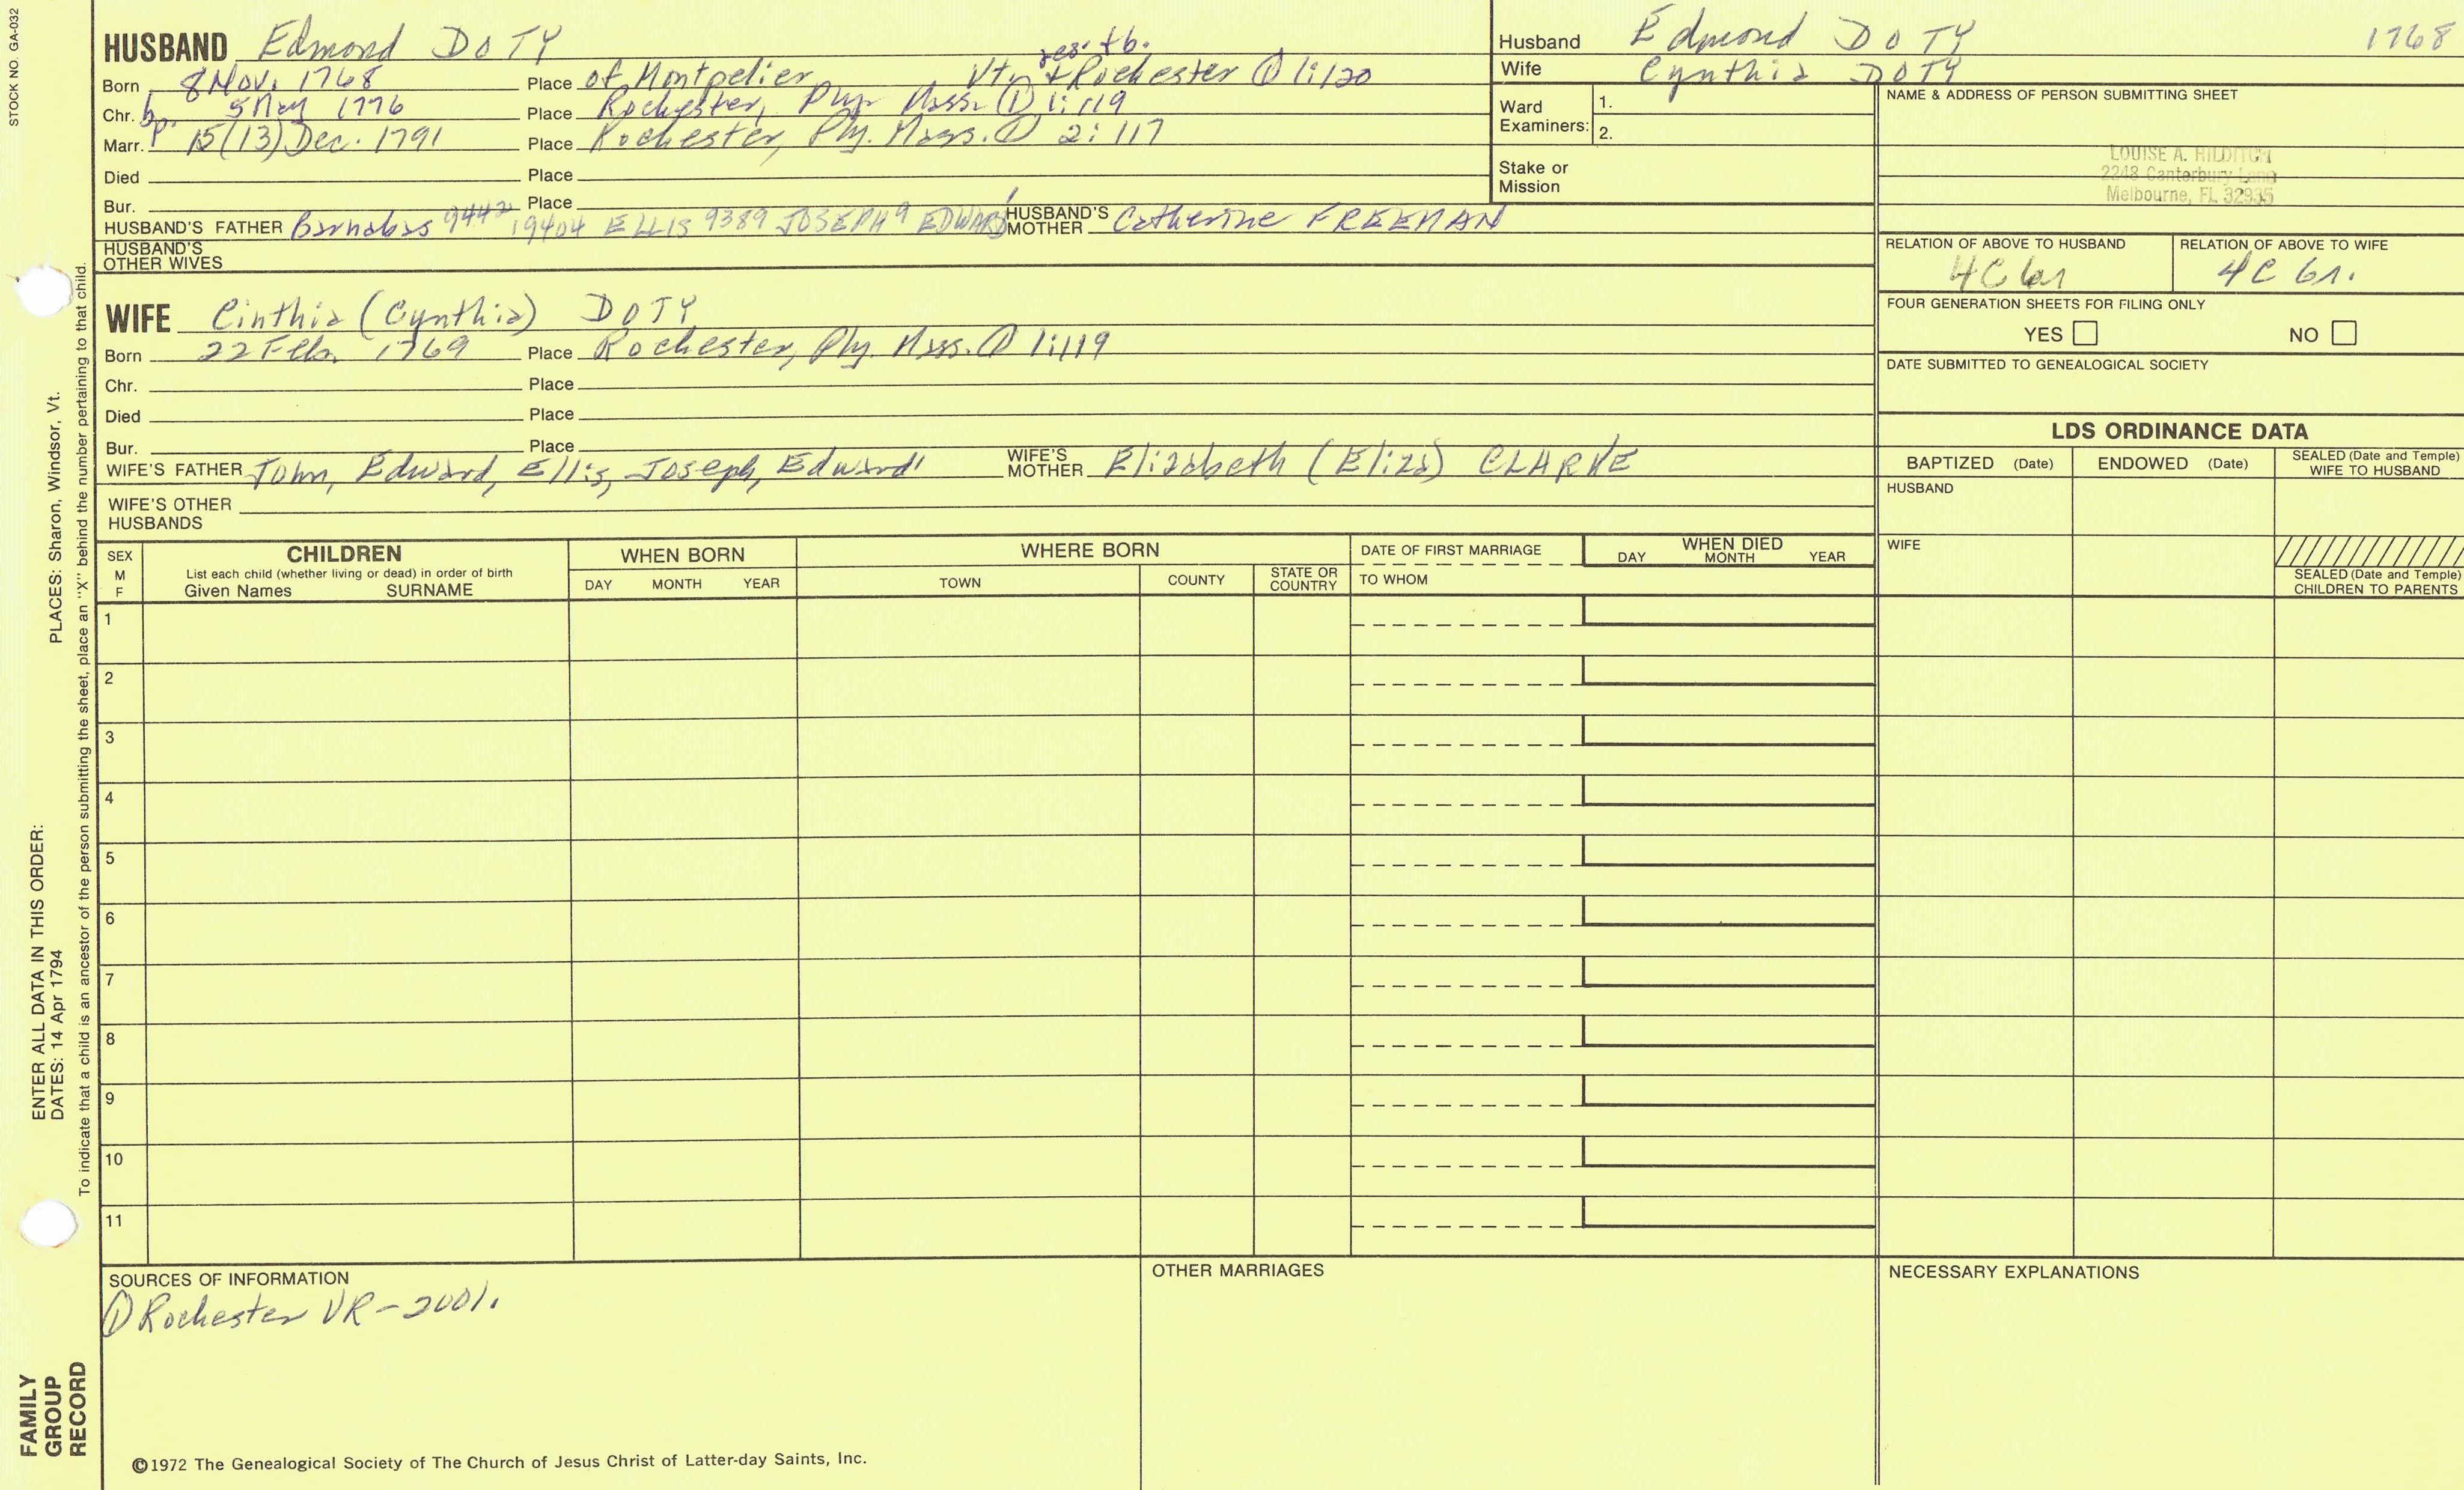 STOCK NO. GA-032
HUSBAND Edmond DOTY
Born 8 Nov. 1768 Place of Montpelier Vt. & Rochester ① 1:120
res. & b.
Chr. bp. 5 May 1776 Place Rochester, Ply. Mass. ① 1:119
Marr. 15(13) Dec. 1791 Place Rochester, Ply. Mass. ① 2:117
Died Place
Bur. Place
HUSBAND'S FATHER Barnabas 9442 19404 ELLIS 9389 JOSEPH 9 EDWARD 1 HUSBAND'S MOTHER Catherine FREEMAN
HUSBAND'S OTHER WIVES
WIFE Cinthia (Cynthia) DOTY
Born 22 Feb. 1769 Place Rochester, Ply. Mass. ① 1:119
Chr. Place
Died Place
Bur. Place
WIFE'S FATHER John, Edward, Ellis, Joseph, Edward1 WIFE'S MOTHER Elizabeth (Eliza) CLARKE
WIFE'S OTHER HUSBANDS
Husband Edmond DOTY 1768
Wife Cynthia DOTY
Ward Examiners: 1.
2.
Stake or Mission
NAME & ADDRESS OF PERSON SUBMITTING SHEET
LOUISE A. HILDITCH
2248 Canterbury Lane
Melbourne, FL 32935
RELATION OF ABOVE TO HUSBAND RELATION OF ABOVE TO WIFE
4C 6r 4C 6r.
FOUR GENERATION SHEETS FOR FILING ONLY
YES NO
DATE SUBMITTED TO GENEALOGICAL SOCIETY
LDS ORDINANCE DATA
BAPTIZED (Date) ENDOWED (Date) SEALED (Date and Temple) WIFE TO HUSBAND
HUSBAND
WIFE
SEALED (Date and Temple) CHILDREN TO PARENTS
SEX M F
CHILDREN
List each child (whether living or dead) in order of birth
Given Names SURNAME
WHEN BORN
DAY MONTH YEAR
WHERE BORN
TOWN COUNTY STATE OR COUNTRY
DATE OF FIRST MARRIAGE
TO WHOM
WHEN DIED
DAY MONTH YEAR
1
2
3
4
5
6
7
8
9
10
11
SOURCES OF INFORMATION
① Rochester VR - 2001.
OTHER MARRIAGES
NECESSARY EXPLANATIONS
©1972 The Genealogical Society of The Church of Jesus Christ of Latter-day Saints, Inc.
FAMILY GROUP RECORD
ENTER ALL DATA IN THIS ORDER:
DATES: 14 Apr 1794 PLACES: Sharon, Windsor, Vt.
To indicate that a child is an ancestor of the person submitting the sheet, place an "X" behind the number pertaining to that child.